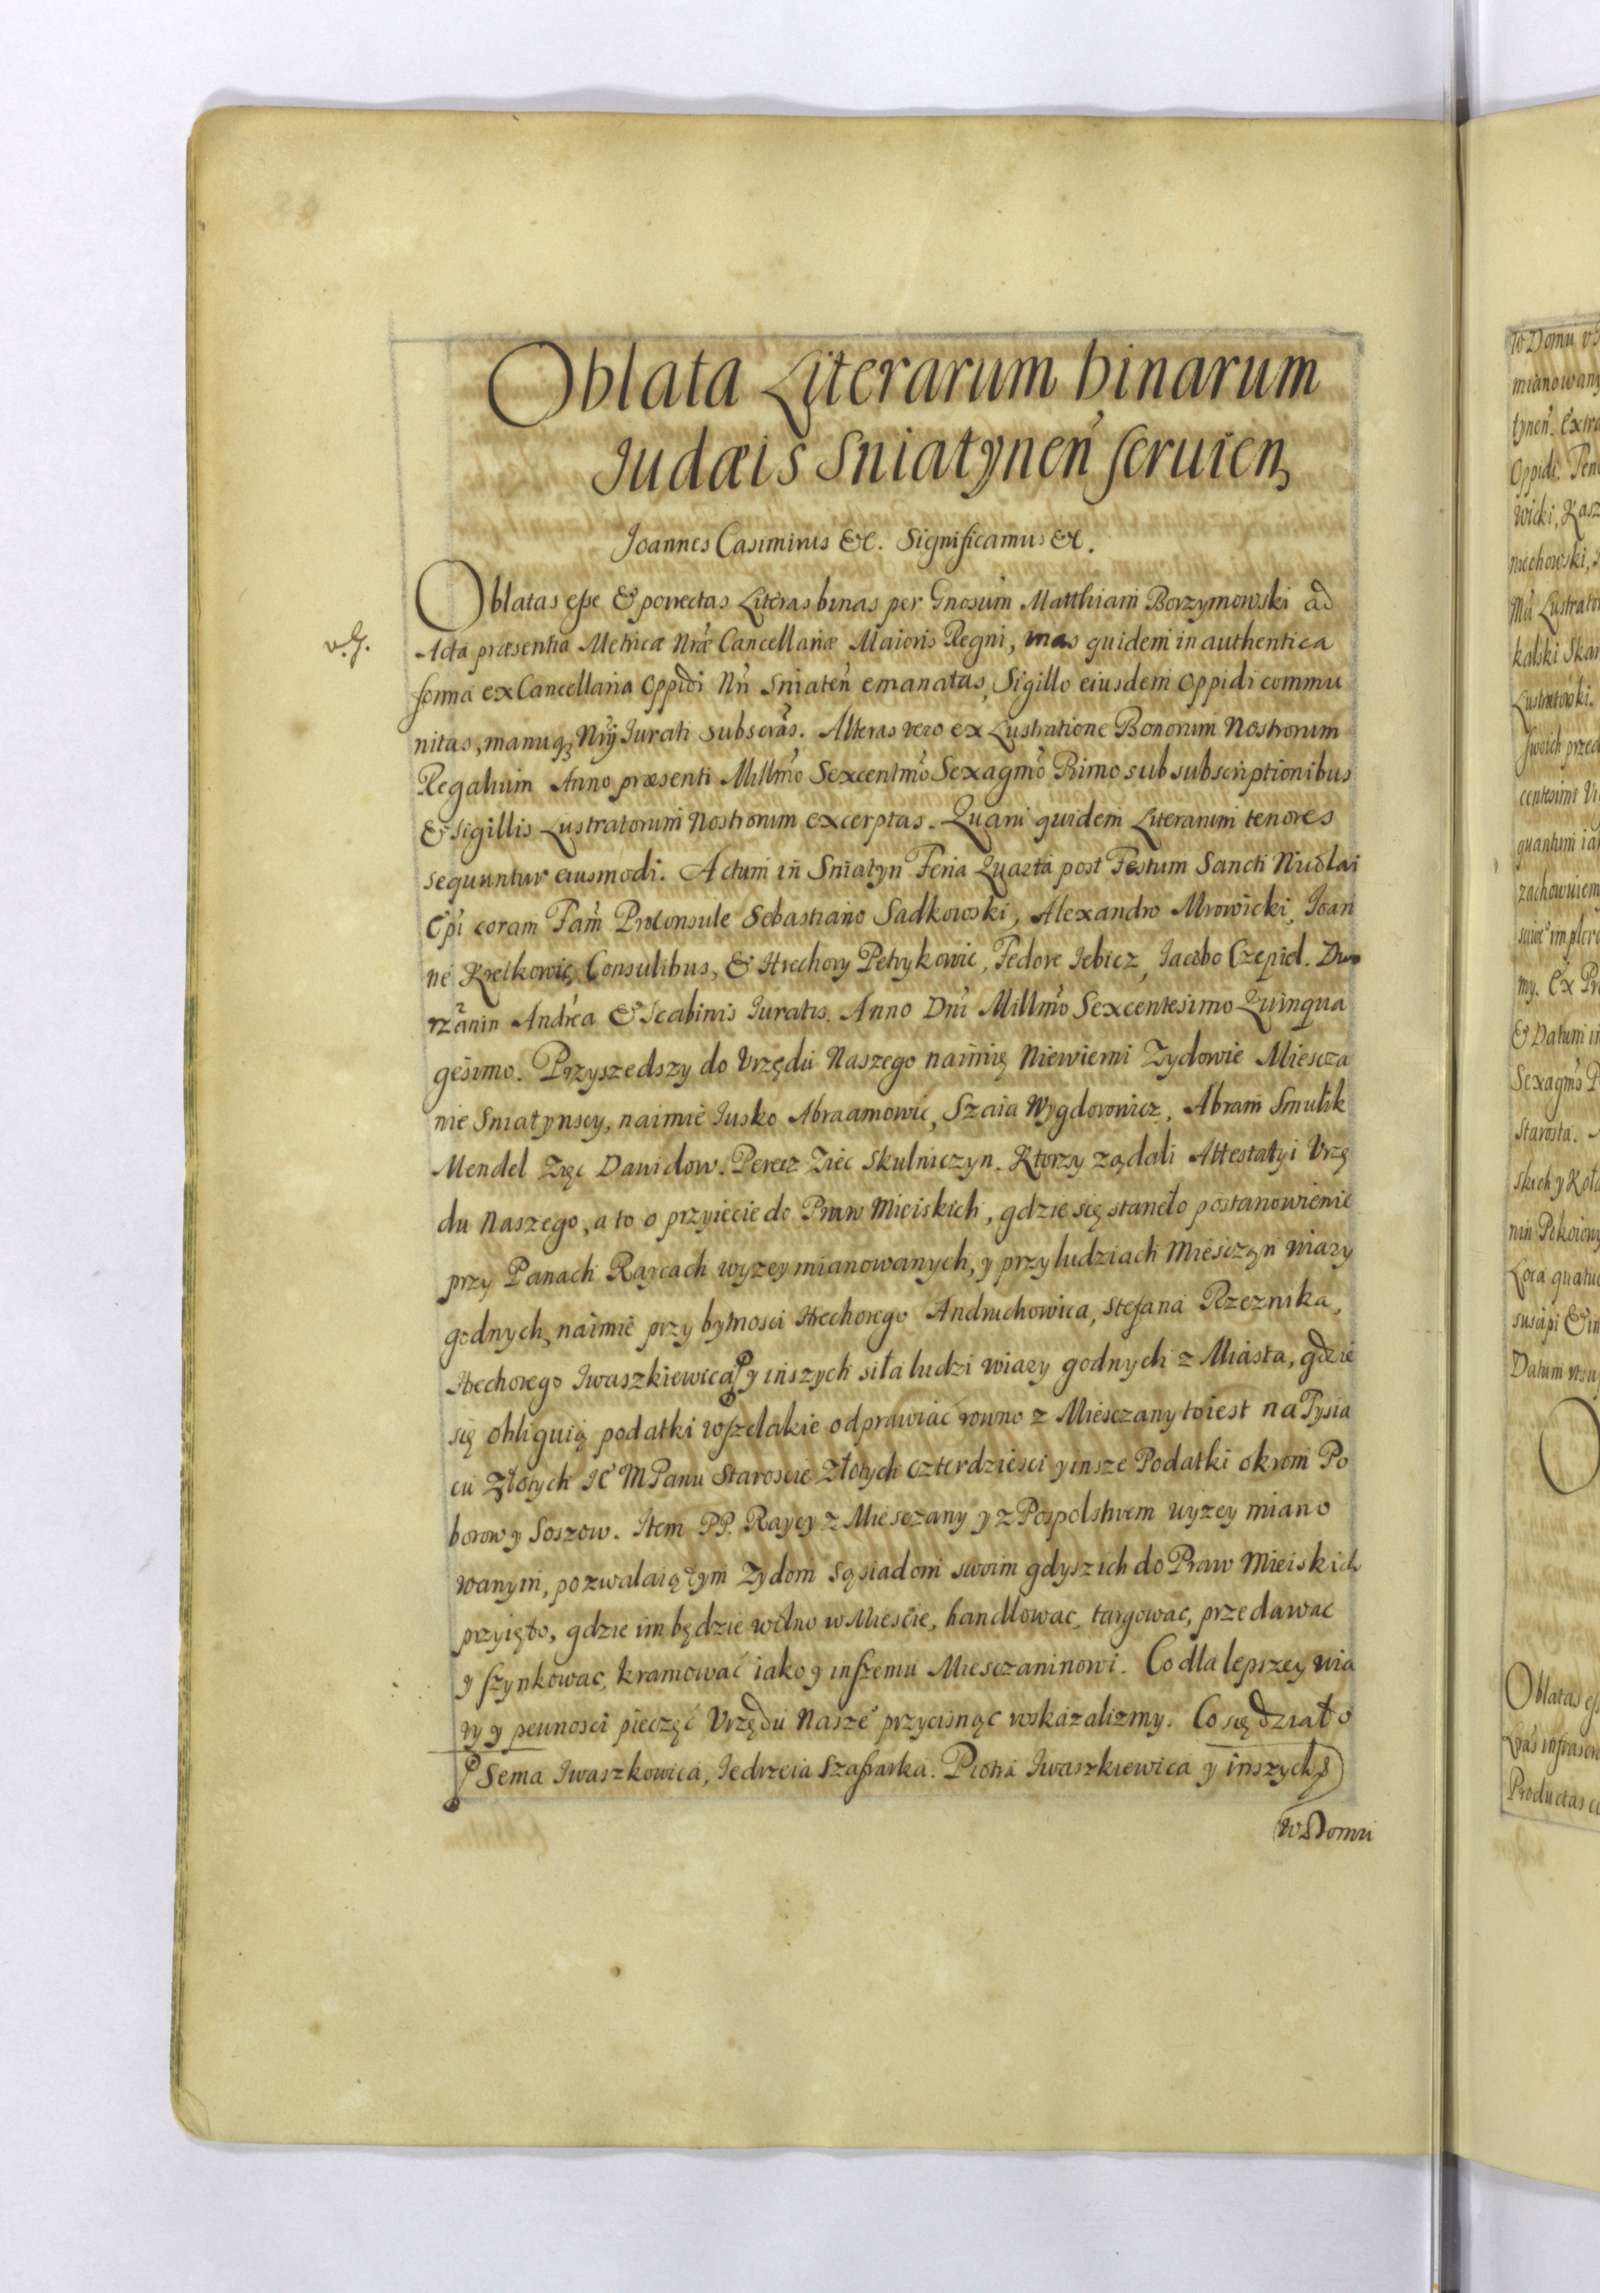 Oblata Literarum binarum
Judæis Sniatynen̄ seruien
Joannes Casimirus &c. Significamus &c.
Oblatas esse & porrectas Literas binas per Gnosum Matthiam Borzymowski ad
v. g.
Acta præsentia Metricæ Nræ Cancellariæ Maioris Regni, unas quidem in authentica
forma ex Cancellaria Oppidi Nri Sniaten̄ emanatas, Sigillo eiusdem Oppidi commu
nitas, manuq3 Nrij Iurati subscras. Alteras vero ex Lustratione Bonorum Nostrorum
Regalium Anno præsenti Millmo Sexcentmo Sexagmo Primo sub subscriptionibus
& sigillis Lustratorum Nostrorum excerptas. Quarum quidem Literarum tenores
sequuntur eiusmodi. Actum in Sniatyn Feria Quarta post Festum Sancti Nicolai
Epi coram Fam Proconsule Sebastiano Sadkowski, Alexandro Mrowicki, Joan
ne Kretkowic, Consulibus, & Hrechory Petrykowic, Fedore Iebicz, Iacobo Czepiel. Dwo
rzanin Andrea & Scabinis Iuratis. Anno Dni Millmo Sexcentesimo Quinqua
gesimo. Przyszedszy do Vrzędu Naszego naimię Niewierni Zydowie Miescza
nie Sniatynscy, naimie Jusko Abraamowic, Szaia Wygdorowicz, Abram Smulik
Mendel Zięc Dawidow. Perecz Ziec Skulniczyn. Ktorzy ządali Attestatyi Vrzę
du Naszego, a to o przyiecie do Praw Mieiskich, gdzie się staneło postanowienie
przy Panach Raycach wyzey mianowanych, y przy ludziach Miesczan wiary
godnych, naimie przy bytnosci Hrechorego Andruchowica, Stefana Rzeznika,
Hrechorego Iwaszkiewica y inszych siła ludzi wiary godnych z Miasta, gdzie
się obliguią podatki wszelakie odprawiać rowno z Miesczany to iest na Tysia
cu Złotych Ie͡ MPanu Staroscie Złotych czterdziesci y insze Podatki okrom Po
borow y Soszow. Item PP. Raycy z Miesczany y z Pospolstwem wyzey miano
wanym, pozwalaią tym Zydom sąsiadom swoim gdysz ich do Praw Mieiskich
przyięto, gdzie im będzie wolno w Miescie, handlowac, targowac, przedawac
y szynkowac, kramować iako y inszemu Miesczaninowi. Co dla lepszey wia
ry y pewnosci pieczęć Vrzędu Nasze͡ przycisnąc roskazalizmy. Co się działo
Sema Iwaszkowica, Iedrzeia Szafarka. Piotra Iwaszkiewica y inszych
w Domu
w Domu
mianowany
tynen̄. Extra
Oppidi
wicki, Kasz
niechowski,
kalski Skar
Lustratorski.
swoich przed
centesimi
quantum iar
zachowuiem
my. Ex
& Datum in
Sexagmo P
Starosta.
skich y Koła
nin Pokoiowy
Loca quatuor
suscipi & in
Datum
Oblatas ess
Productas